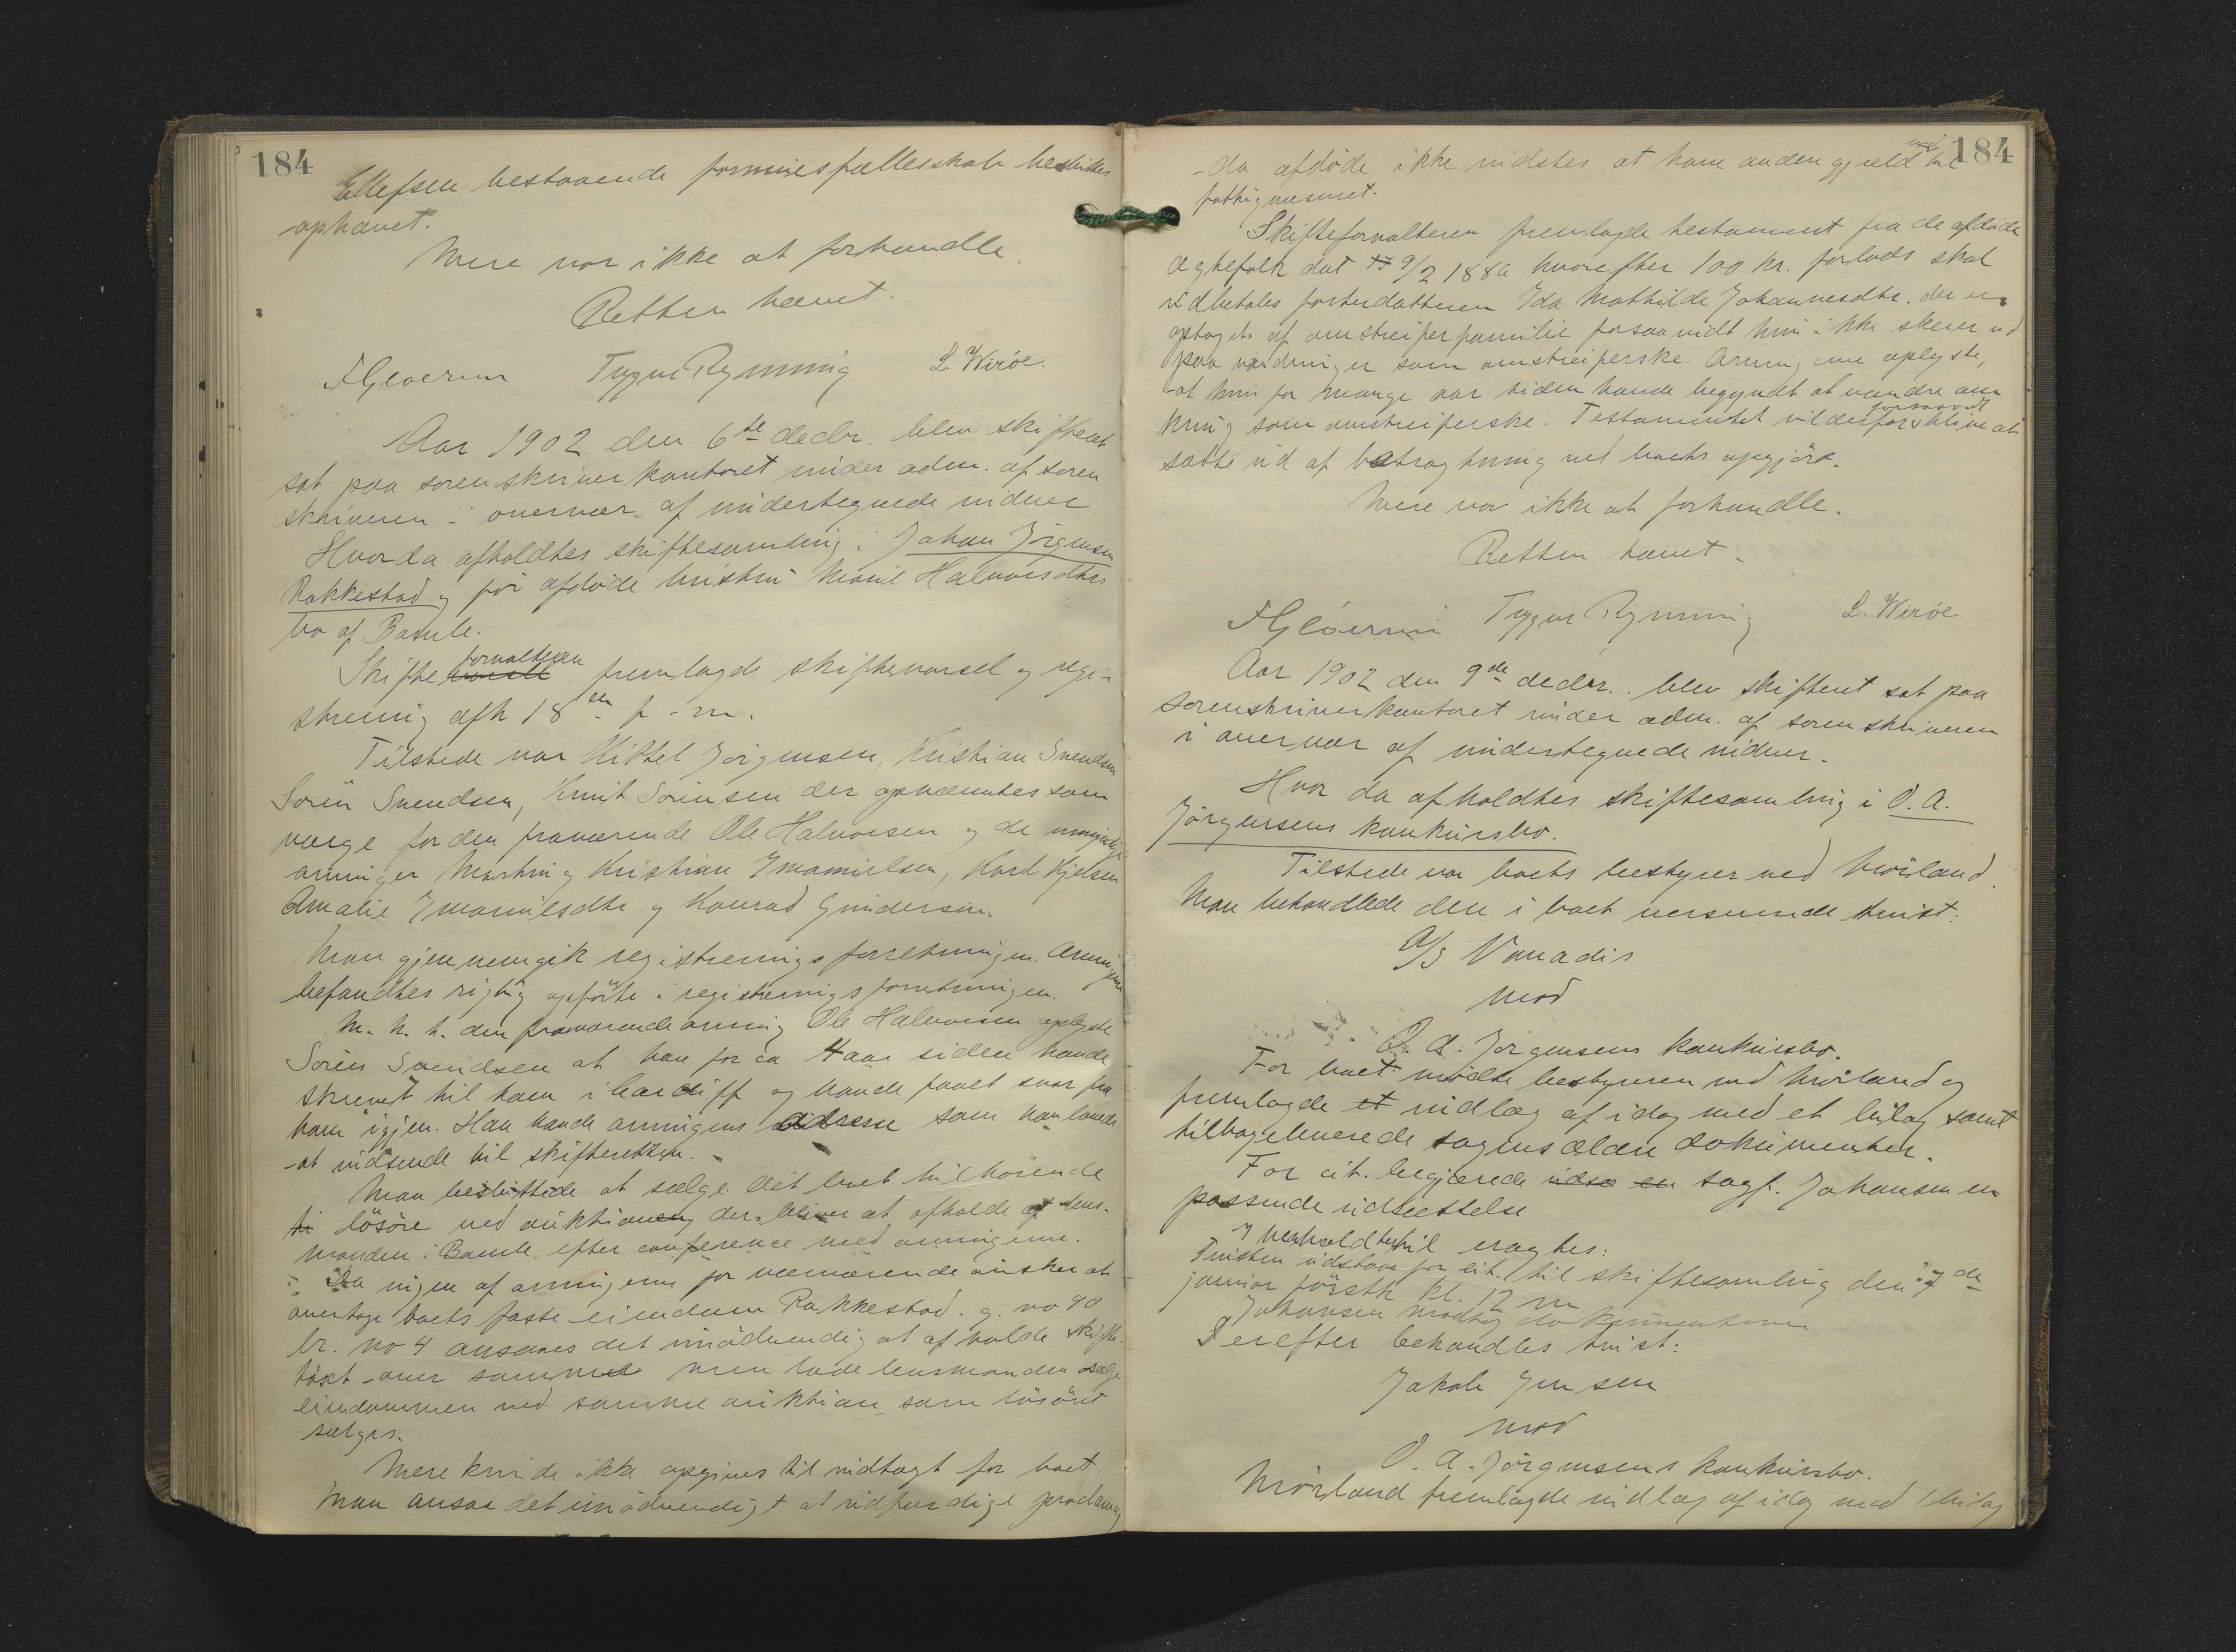 184
Ellefsen bestaaende formuesfællesskab besluttes
ophævet.
Mere var ikke at forhandle.
Retten hævet.
Trygve Rynning L. Wirøe.
Aar 1902 den 6te decbr. blev skifteret
sat paa sorenskriverkontoret under adm. af soren
skriveren i overvær af undertegnede vidner
Hvorda afholdtes skiftesamling i Johan Jørgensen
Rakkestad og før afdøde hustru Maril Halvorsdtrs
bo af Bamle.
Skifteforvalteren fremlagde skiftevarsel og regi-
strering afh 18de f. m.
Tilstede var Kittel Jørgensen, Kristian Svendsen
Søren Svendsen, Knut Sørensen der opnævntes som
værge for den fraværende Ole Halvorsen og de umyndige
arvinger Martin og Kristian Imanuelsen, Karl Kjelsen
Amalie Imanuelsdtr og Konrad Gundersen.
Man gjennemgik registreringsforretningen. Arvingerne
befandtes rigtig opførte i registreringsforretningen.
M. h. t. den fraværende arving Ole Halvorsen oplyste
Søren Svendsen at han for ca. 4 aar siden havde
skrevet til ham i Cardiff og havde faaet svar fra
ham igjen. Han havde arvingens adresse som han lovede
at indsende til skifteretten.
Man besluttede at sælge det boet tilhørende
løsøre ved auktion der bliver at afholde af lens-
manden i Bamle efter conference med arvingerne.
Da ingen af arvingerne for nærværende ønsker at
overtage boets faste eiendom Rakkestad. g. no 90
br. no 4 ansaaes det unødvendig at afholde skifte-
taxt over samme men lade lensmanden sælge
eiendommen ved samme auktion som løsøret
sælges.
Mere kunde ikke opgives til indtægt for boet.
Man ansaa det unødvendigt at udfærdige proclama
184
da afdøde ikke vidstes at have anden gjeld end til
fattigvæsenet.
Skifteforvalteren fremlagde testament fra de afdøde
ægtefolk dat 9/2 1886 hvorefter 100 kr. forlods skal
udbetales fosterdatteren Ida Mathilde Johannesdtr. der er
optaget af omstreiferfamilie forsaavidt hun ikke skeier ud
paa vandringer som omstreiferske. Arvingerne oplyste,
at hun for mange aar siden havde begyndt at vandre om
kring som omstreiferske. Testamentet vil derfor forsaavidt blive at
sætte ud af betragtning ved boets opgjør.
Mere var ikke at forhandle.
Retten hævet.
Trygve Rynning L. Wirøe
Aar 1902 den 9de decbr. blev skifteret sat paa
sorenskriverkontoret under adm. af sorenskriveren
i overvær af undertegnede vidner.
Hvor da afholdtes skiftesamling i O. A.
Jørgensens konkursbo.
Tilstede var boets bestyrer ved Mørland.
Man behandlede den i boet verserende tvist:
A/S Vanadis
mod
O. A. Jørgensens konkursbo.
For boet mødte bestyreren ved Mørland og
fremlagde et indlæg af idag med et bilag samt
tilbageleverede sagens ældre dokumenter.
For cit. begjærede udsæ en sagf. Johansen en
passende udsættelse
I henhold hertil eragtes:
Tvisten udstaar for cit. til skiftesamling den 7de
januar førstk kl. 12 m
Johansen modtog dokumenterne
Derefter behandles tvist:
Jakob Jensen
mod
O. A. Jørgensens konkursbo.
Mørland fremlagde indlæg af idag med 1 bilag